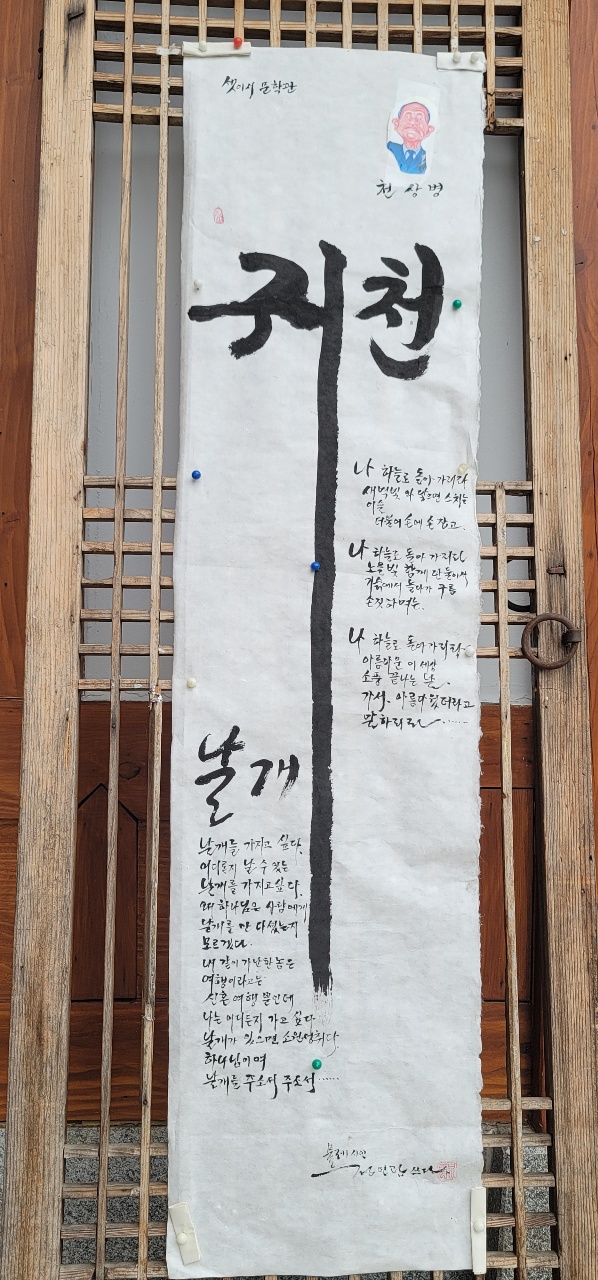 문학관
천상병
귀천
나 하늘로 돌아가리라
새벽빛 와 닿으면 스러지는
이슬
더불어 손에 손 잡고.
나 하늘로 돌아가리라
노을빛 함께 단둘이서
기슭에서 놀다가 구름
손짓하며는.
나 하늘로 돌아가리라
아름다운 이 세상
소풍 끝나는 날.
가서, 아름다웠더라고
말하리라......
날개
날개를 가지고 싶다.
어디론지 날 수 있는
날개를 가지고 싶다.
왜 하나님은 사람에게
날개를 안 다셨는지
모르겠다.
내 같이 가난한 놈은
여행이라고는
신혼 여행 뿐인데
나는 어디든지 가고 싶다
날개가 있으면 소원성취다
하나님이여
날개를 주소서 주소서......
시인
쓰다